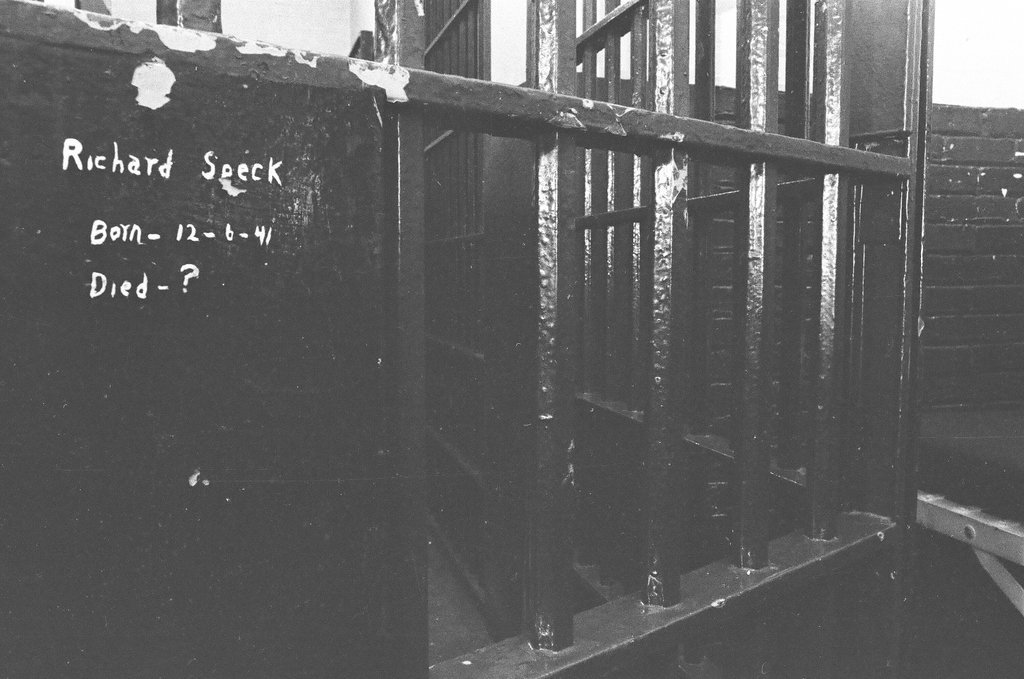 Richard Speck
Born- 12-6-41
Died-?